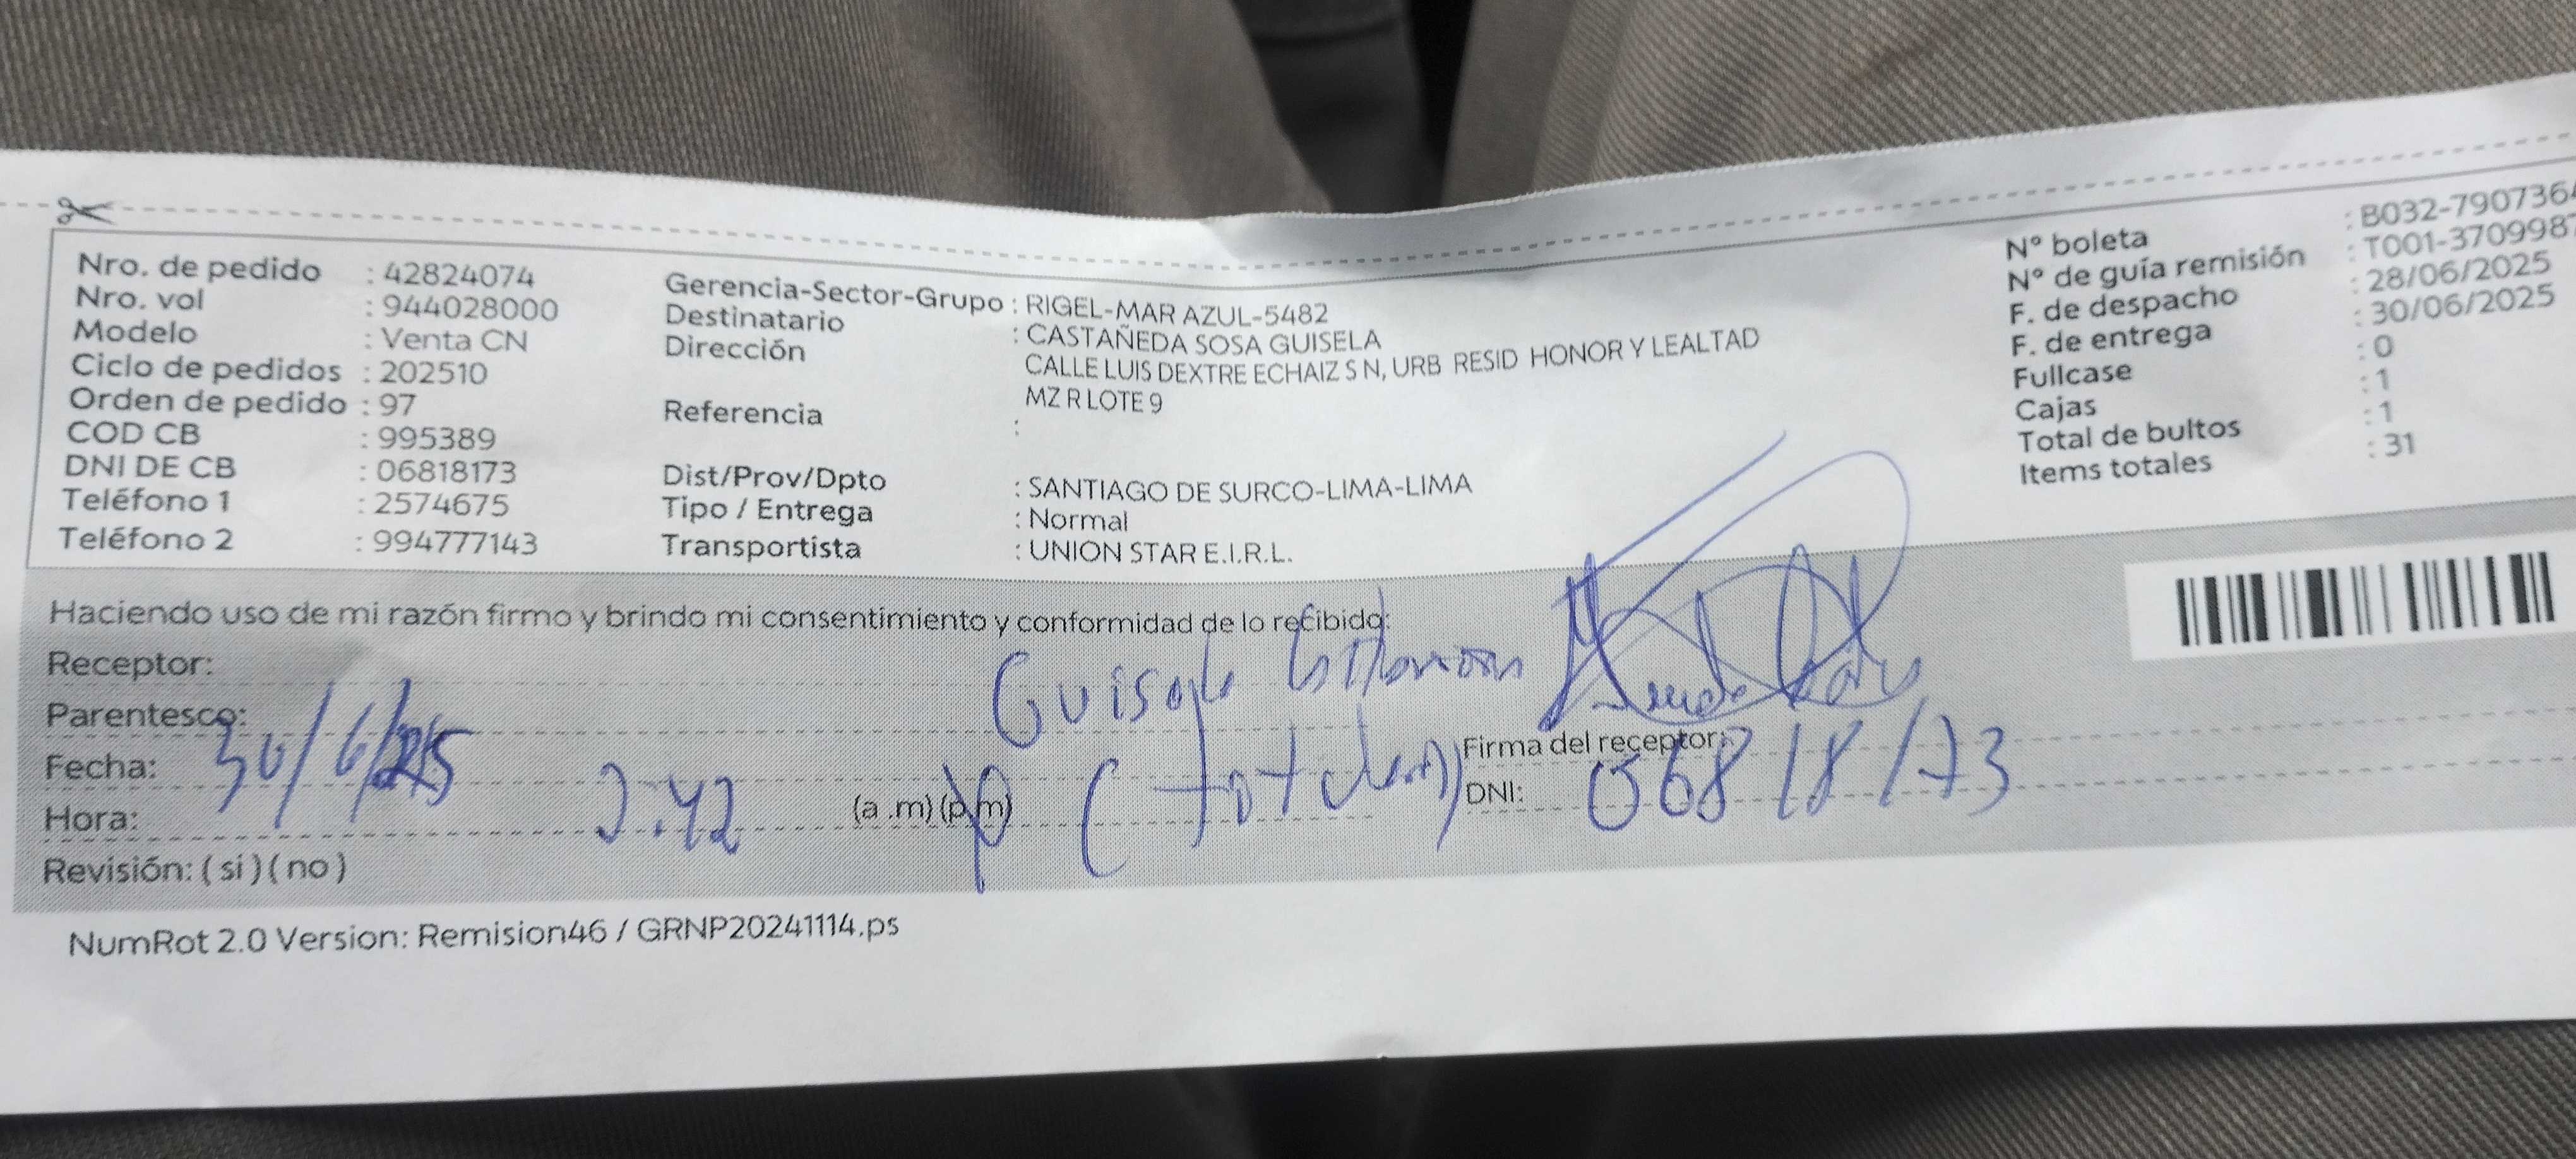 Nro. de pedido : 42824074
Nro. vol : 944028000
Modelo : Venta CN
Ciclo de pedidos : 202510
Orden de pedido : 97
COD CB : 995389
DNI DE CB : 06818173
Teléfono 1 : 2574675
Teléfono 2 : 994777143
Gerencia-Sector-Grupo : RIGEL-MAR AZUL-5482
Destinatario : CASTAÑEDA SOSA GUISELA
Dirección : CALLE LUIS DEXTRE ECHAIZ S N, URB RESID HONOR Y LEALTAD
MZ R LOTE 9
Referencia :
Dist/Prov/Dpto : SANTIAGO DE SURCO-LIMA-LIMA
Tipo / Entrega : Normal
Transportista : UNION STAR E.I.R.L.
N° boleta : B032-7907364
N° de guía remisión : T001-3709987
F. de despacho : 28/06/2025
F. de entrega : 30/06/2025
Fullcase : 0
Cajas : 1
Total de bultos : 1
Items totales : 31
Haciendo uso de mi razón firmo y brindo mi consentimiento y conformidad de lo recibido:
Receptor:
Parentesco:
Fecha: 30/6/25
Hora: 2:42 (a .m) (p.m)
Revisión: ( si ) ( no )
Firma del receptor:
DNI: 06818173
NumRot 2.0 Version: Remision46 / GRNP20241114.ps